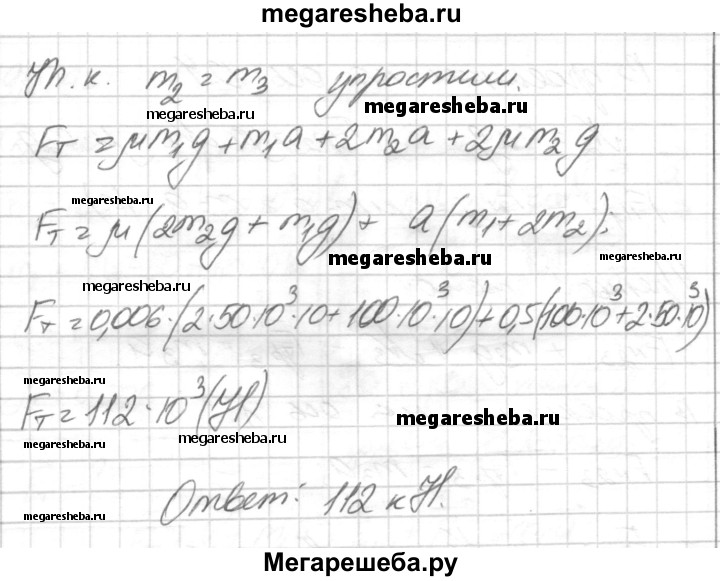 megaresheba.ru
Т.к. m₂ = m₃ упростили.
megaresheba.ru megaresheba.ru
Fт = μm₁g + m₁a + 2m₂a + 2μm₂g
megaresheba.ru
Fт = μ(2m₂g + m₁g) + a(m₁ + 2m₂);
megaresheba.ru megaresheba.ru
megaresheba.ru
Fт = 0,006·(2·50·10³·10 + 100·10³·10) + 0,5(100·10³ + 2·50·10³)
megaresheba.ru
Fт = 112·10³(Н)
megaresheba.ru
megaresheba.ru megaresheba.ru
Ответ: 112 кН.
megaresheba.ru
Мегарешеба.ру